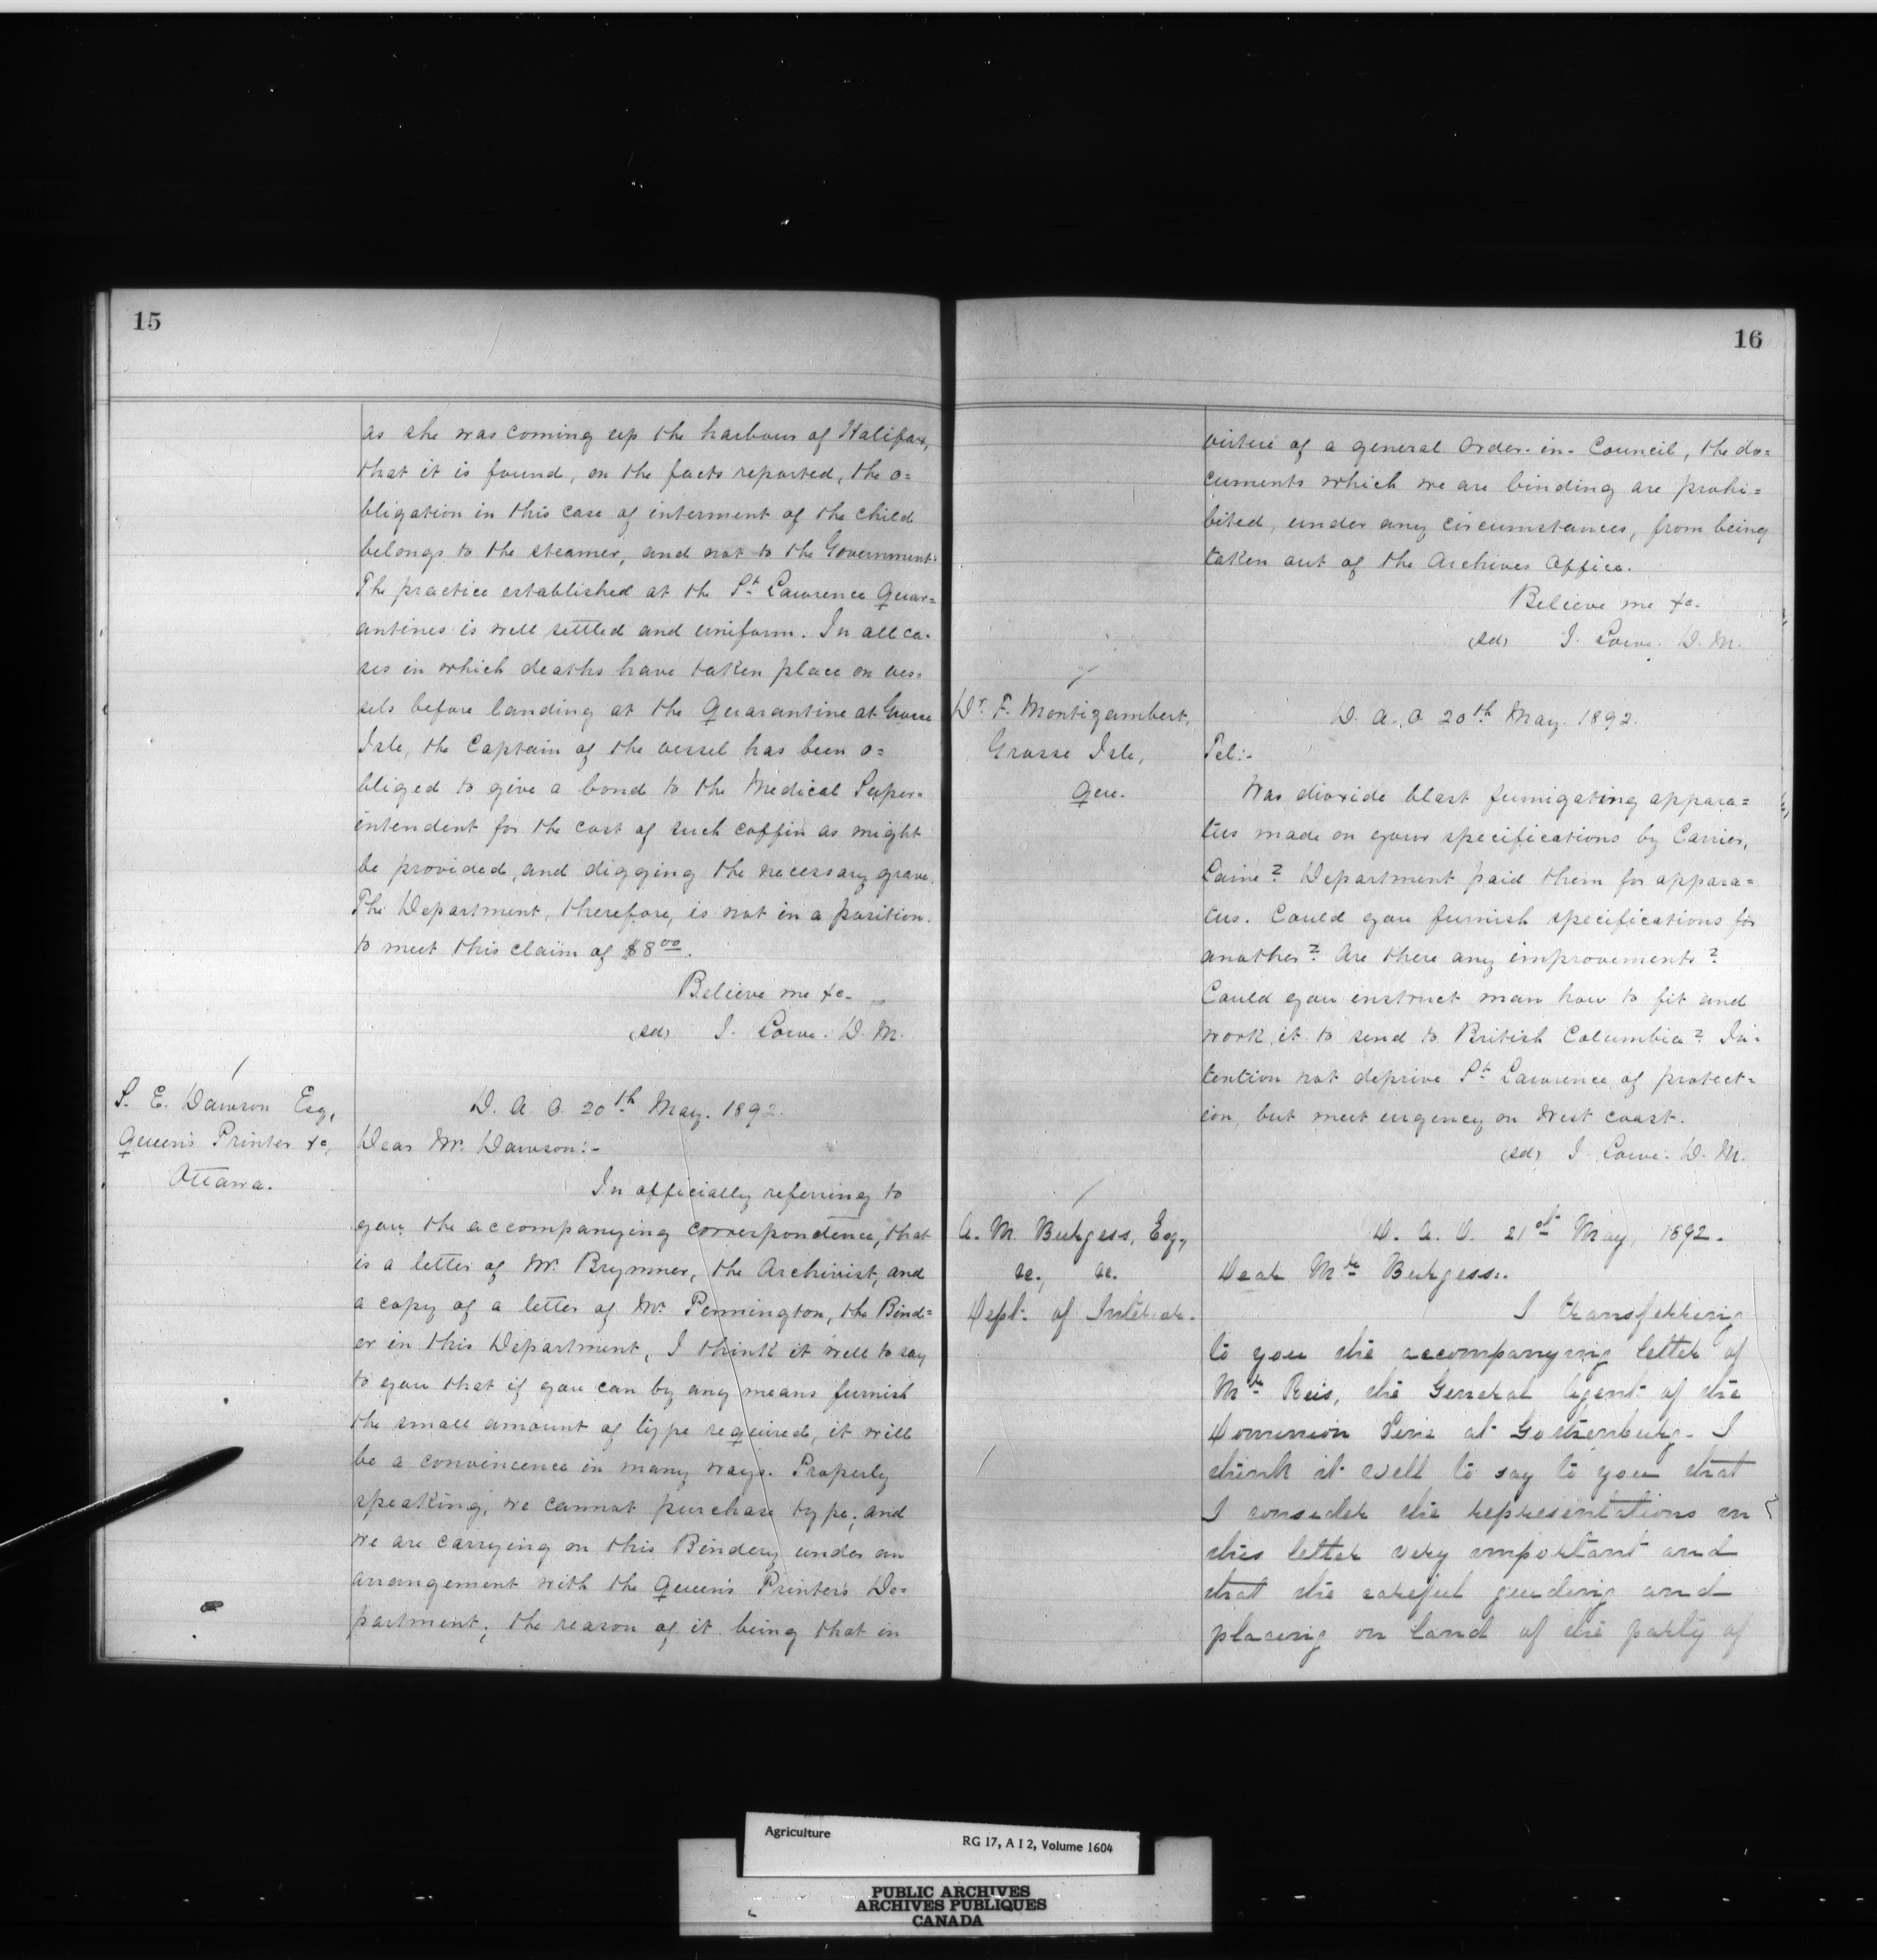 15
as she was coming up the harbour of Halifax,
that it is found, on the facts reported, the o=
bligation in this case of interment of the child
belongs to the steamer, and not to the Government.
The practice established at the St. Lawrence Quar=
antines is well settled and uniform. In all ca-
ses in which deaths have taken place on ves=
sels before landing at the Quarantine at Grosse
Isle, the Captain of the vessel has been o=
bliged to give a bond to the Medical Super=
intendent for the cost of such coffin as might
be provided, and digging the necessary grave.
The Department, therefore, is not in a position
to meet this claim of $8 00.
Believe me &c.
(sd) J. Lowe. D. M.
S. E. Dawson Esq,
Queen's Printer &c,
Ottawa.
D. A. O. 20th May. 1892.
Dear Mr. Dawson:-
In officially referring to
you the accompanying correspondence, that
is a letter of Mr. Brymner, the Archivist, and
a copy of a letter of Mr. Pennington, the Bind=
er in this Department, I think it well to say
to you that if you can by any means furnish
the small amount of type required, it will
be a convincence in many ways. Properly
speaking, we cannot purchase type; and
we are carrying on this Bindery under an
arrangement with the Queen's Printer's De=
partment; the reason of it being that in
16
virtue of a general Order-in-Council, the do=
cuments which we are binding are prohi=
bited, under any circumstances, from being
taken out of the Archives Office.
Believe me &c.
(sd) J. Lowe. D. M.
Dr. F. Montizambert,
Grosse Isle,
Que.
D. A. O. 20th May. 1892.
Tel:-
Was dioxide blast fumigating appara=
tus made on your specifications by Carrier,
Laine? Department paid them for appara=
tus. Could you furnish specifications for
another? Are there any improvements?
Could you instruct man how to fit and
work it to send to British Columbia? In-
tention not deprive St. Lawrence of protect=
ion, but meet urgency on West coast.
(sd) J. Lowe. D. M.
A. M. Burgess, Esq,
&c., &c.
Dept. of Interior.
D. A. O. 21st May, 1892.
Dear Mr. Burgess:.
I transferring
to you the accompanying letter of
Mr. Reis, the General Agent of the
Dominion Line at Gothenburg. I
think it well to say to you that
I consider the representations in
this letter very important and
that the careful guiding and
placing on land of the party of
Agriculture
RG 17, A I 2, Volume 1604
PUBLIC ARCHIVES
ARCHIVES PUBLIQUES
CANADA